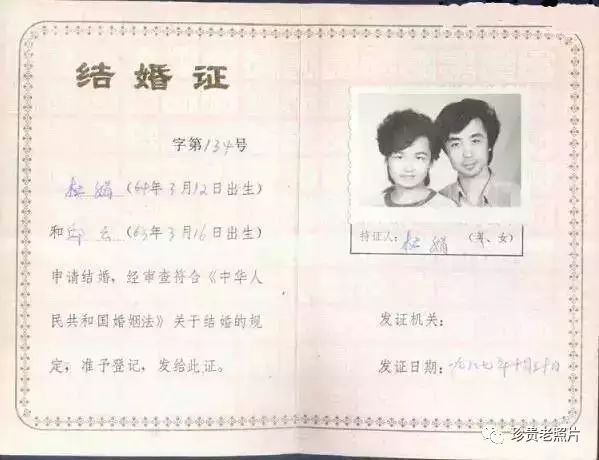 结婚证
字第134号
杜娟(64年3月12日出生)
和邱云(63年3月16日出生)
申请结婚,经审查符合《中华人
民共和国婚姻法》关于结婚的规
定,准予登记,发给此证。
持证人:杜娟 (男、女)
发证机关:
发证日期:一九八七年十月三十日
珍贵老照片